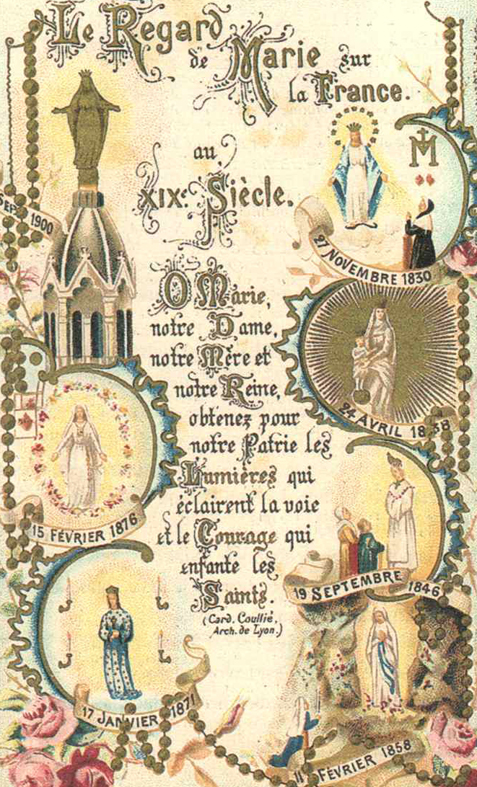 Le Regard
de Marie sur
la France.
au
XIXe Siècle.
O Marie,
notre Dame,
notre Mère et
notre Reine,
obtenez pour
notre Patrie les
Lumières qui
éclairent la voie
et le Courage qui
enfante les
Saints.
(Card. Coullié,
Arch. de Lyon.)
1900
27 NOVEMBRE 1830
M
24 AVRIL 1838
15 FÉVRIER 1876
19 SEPTEMBRE 1846
17 JANVIER 1871
11 FÉVRIER 1858